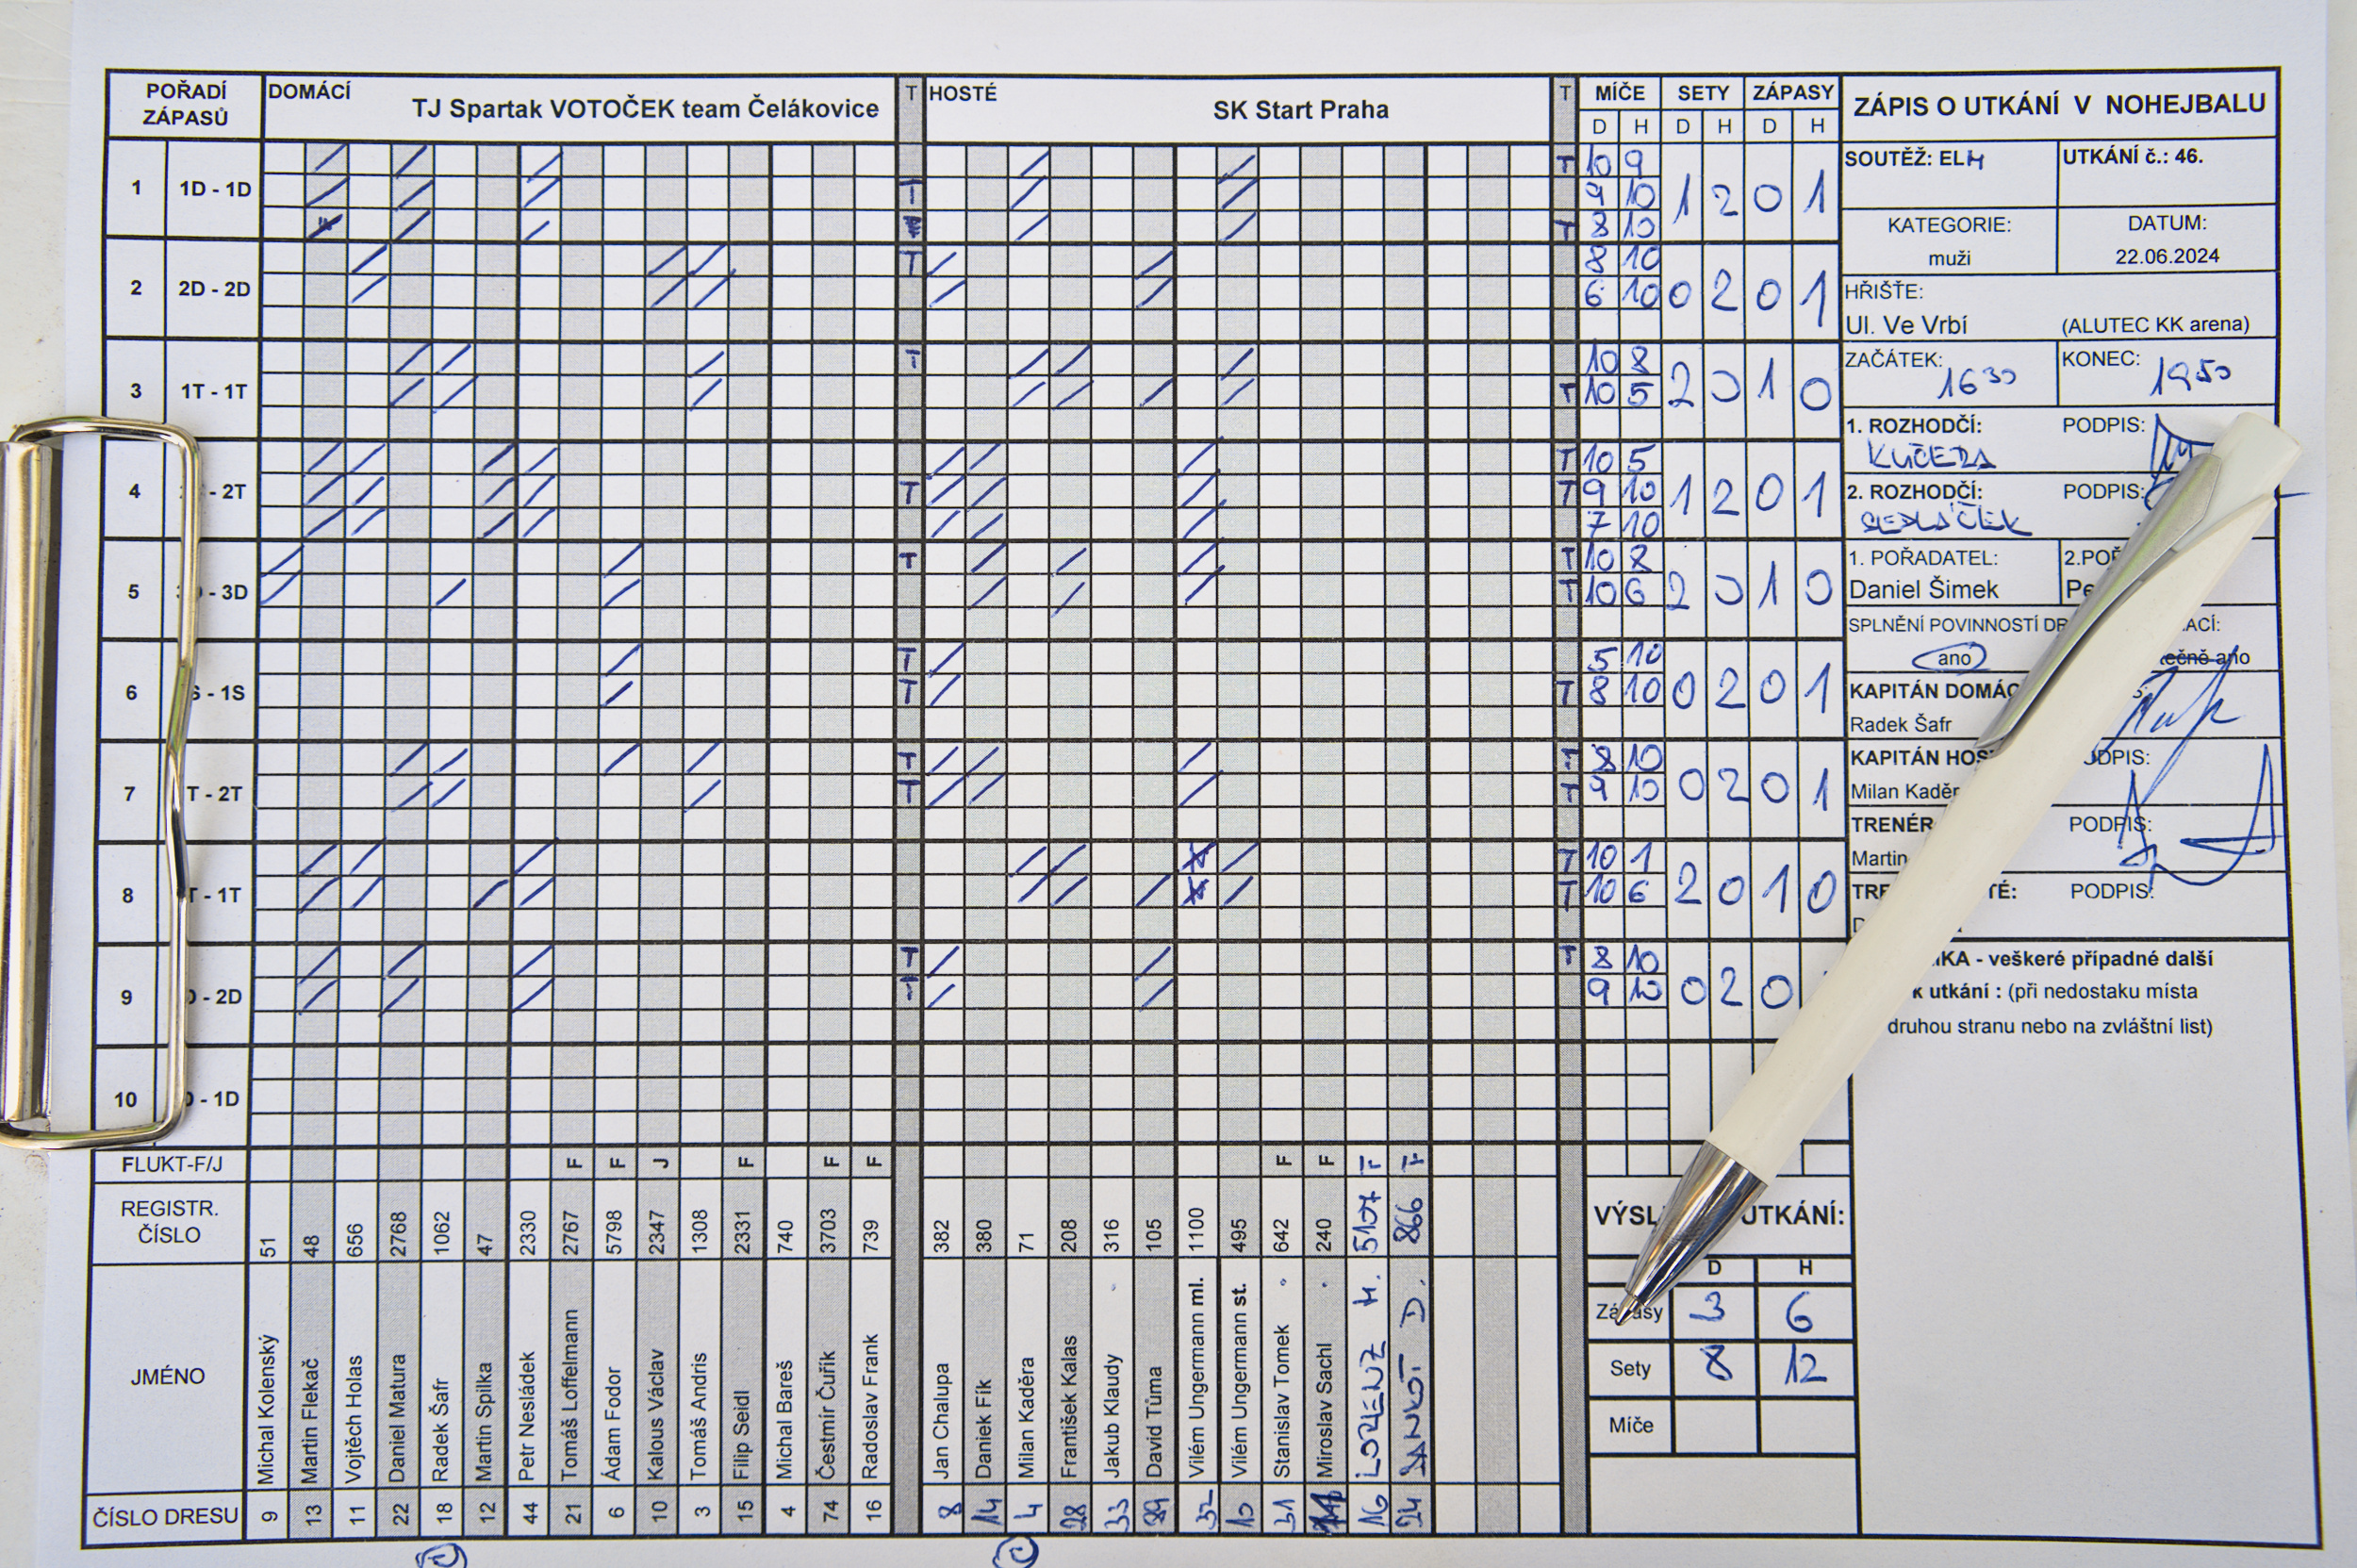 POŘADÍ ZÁPASŮ DOMÁCÍ TJ Spartak VOTOČEK team Čelákovice T HOSTÉ SK Start Praha T MÍČE SETY ZÁPASY
D H D H D H
1 1D - 1D T 10 9
T 9 10 1 2 0 1
T 8 10
2 2D - 2D T 8 10
6 10 0 2 0 1
3 1T - 1T T 10 8
T 10 5 2 0 1 0
4 - 2T T 10 5
T T 9 10 1 2 0 1
7 10
5 - 3D T T 10 8
T 10 6 2 0 1 0
6 - 1S T 5 10
T T 8 10 0 2 0 1
7 T - 2T T T 8 10
T T 9 10 0 2 0 1
8 T - 1T T 10 1
T 10 6 2 0 1 0
9 - 2D T T 8 10
T 9 10 0 2 0
10 - 1D
FLUKT-F/J F F J F F F F F F F
REGISTR. ČÍSLO 51 48 656 2768 1062 47 2330 2767 5798 2347 1308 2331 740 3703 739 382 380 71 208 316 105 1100 495 642 240 5107 866
JMÉNO Michal Kolenský Martin Flekač Vojtěch Holas Daniel Matura Radek Šafr Martin Spilka Petr Nesládek Tomáš Loffelmann Adam Fodor Kalous Václav Tomáš Andris Filip Seidl Michal Bareš Čestmír Čuřík Radoslav Frank Jan Chalupa Daniek Fík Milan Kaděra František Kalas Jakub Klaudy David Tůma Vilém Ungermann ml. Vilém Ungermann st. Stanislav Tomek Miroslav Sachl LORENZ H. D.
ČÍSLO DRESU 9 13 11 22 18 12 44 21 6 10 3 15 4 74 16 8 14 4 28 33 89 32 10 31 16 24
C C
ZÁPIS O UTKÁNÍ V NOHEJBALU
SOUTĚŽ: ELM UTKÁNÍ č.: 46.
KATEGORIE: DATUM:
muži 22.06.2024
HŘIŠTE:
Ul. Ve Vrbí (ALUTEC KK arena)
ZAČÁTEK: 16 30 KONEC: 19 50
1. ROZHODČÍ: PODPIS:
KUČERA
2. ROZHODČÍ: PODPIS:
SEDLÁČEK
1. POŘADATEL: 2.POŘ
Daniel Šimek Pe
SPLNĚNÍ POVINNOSTÍ
ano ečně ano
KAPITÁN DOMÁC
Radek Šafr
KAPITÁN HOS PODPIS:
Milan Kaděr
TRENÉR PODPIS:
Martin
TÉ: PODPIS:
- veškeré případné další
k utkání : (při nedostaku místa
druhou stranu nebo na zvláštní list)
VÝSL UTKÁNÍ:
D H
Zápasy 3 6
Sety 8 12
Míče